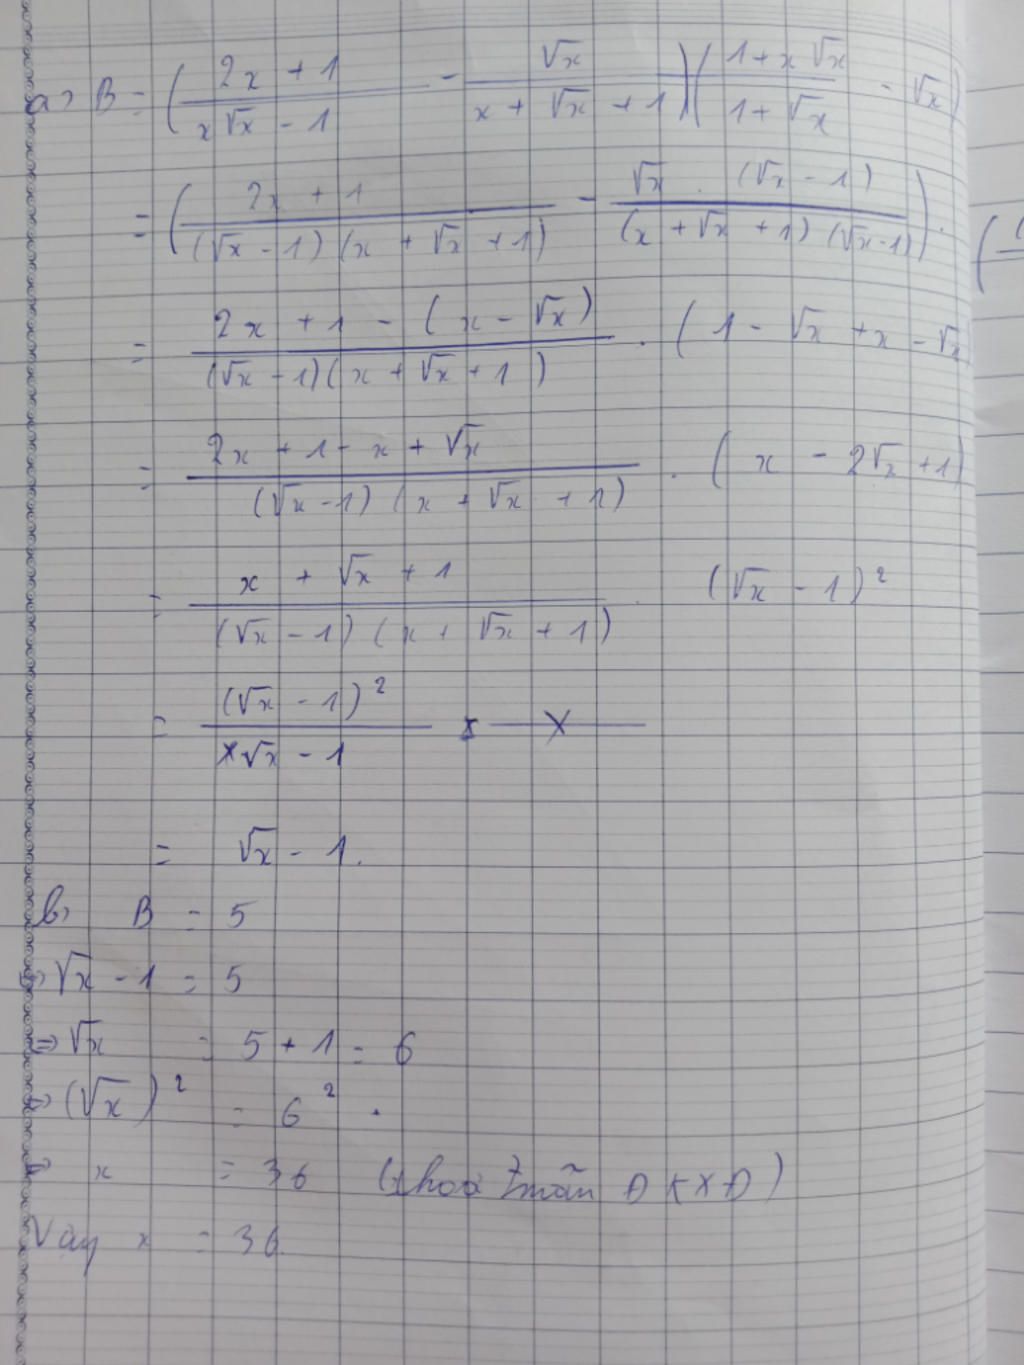 a> B = ( 2x + 1 / x√x - 1 - √x / x + √x + 1 ) ( 1 + x√x / 1 + √x - √x )
= ( 2x + 1 / (√x - 1) (x + √x + 1) - √x . (√x - 1) / (x + √x + 1) (√x - 1) ) . (
= 2x + 1 - (x - √x) / (√x - 1) (x + √x + 1) . ( 1 - √x + x - √x
= 2x + 1 - x + √x / (√x - 1) (x + √x + 1) . ( x - 2√x + 1)
= x + √x + 1 / (√x - 1) (x + √x + 1) . (√x - 1)²
= (√x - 1)² / √x - 1
= √x - 1.
b> B = 5
⇔ √x - 1 = 5
⇔ √x = 5 + 1 = 6
⇔ (√x)² = 6² .
⇔ x = 36 (thoả mãn ĐKXĐ)
Vậy x = 36